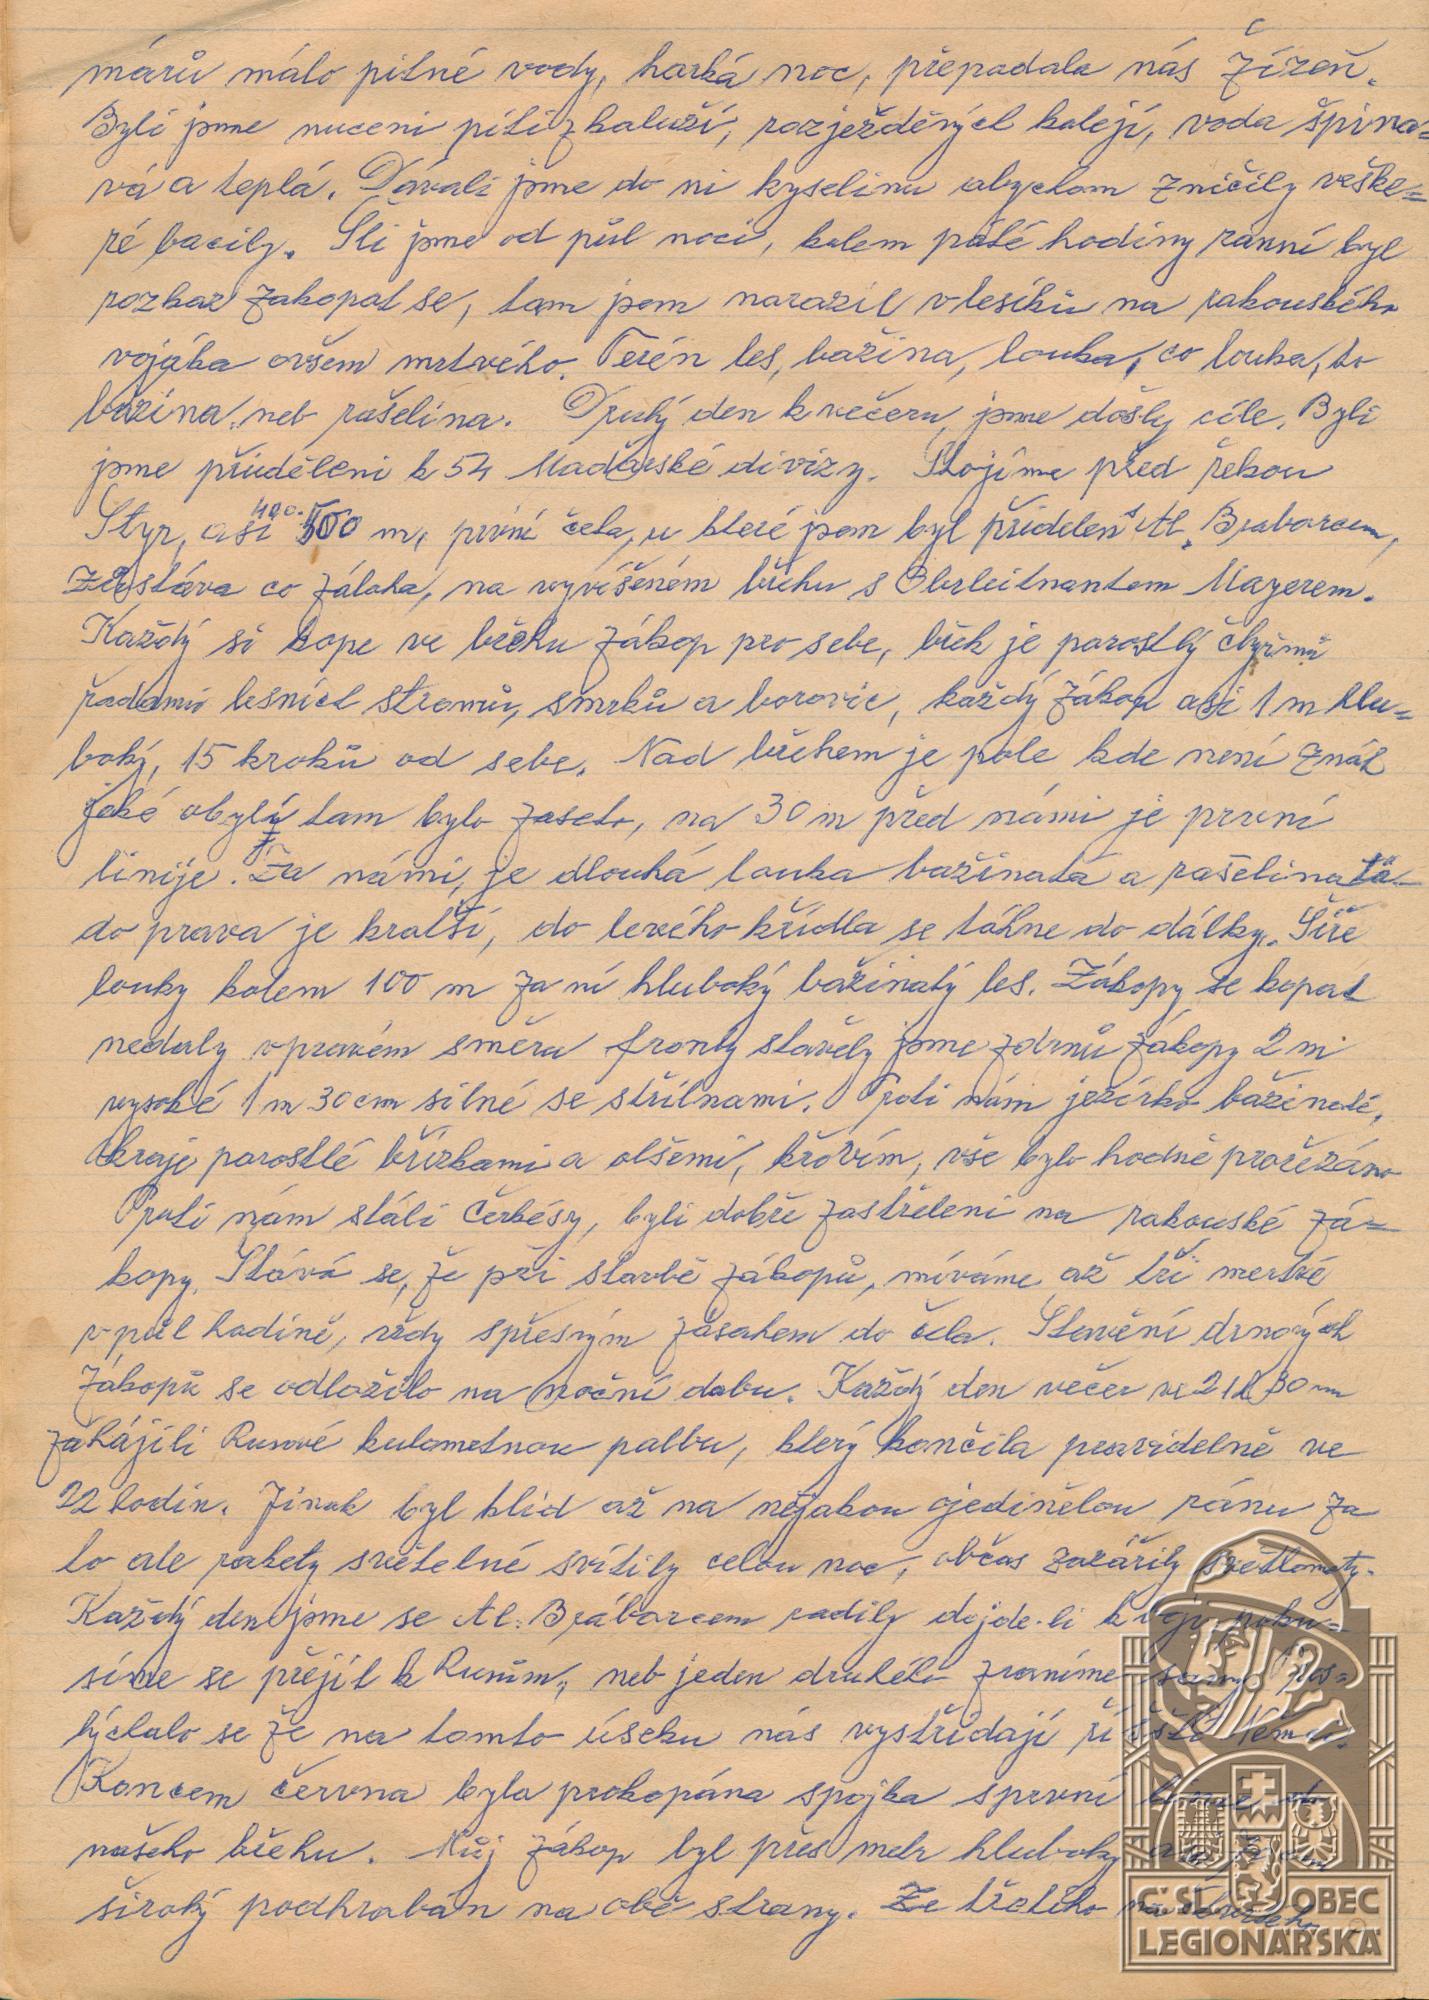 márů málo pitné vody, horká noc, přepadala nás žízeň.
Byli jme nuceni píti z kaluží, rozježděných kolejí, voda špina=
vá a teplá. Dávali jme do ni kyselinu abychom zničily veške=
ré bacily. Šli jme od půl noci, kolem páté hodiny ranní byl
rozkaz zakopat se, tam jsem narazil v lesíku na rakouského
vojáka ovšem mrtvého. Terén les, bažina, louka, co louka, to
bažina, neb rašelina. Druhý den k večeru, jsme došly cíle. Byli
jsme přiděleni k 54 Maďarské divizy. Stojíme před řekou
Styr, asi 400. 500 m, první četa, u které jsem byl přidelen s Al. Braborcem,
zůstáva co záloha, na vyvíšeném břehu s Obrleitnantem Mayerem.
Každý si kope ve břehu zákop pro sebe, břeh je porostlý čtyřmi
řadami lesních stromů, smrků a borovic, každý zákop asi 1 m hlu=
boký, 15 kroků od sebe. Nad břehem je pole kde není znát
jaké obylý tam bylo zaseto, na 30 m před námi je první
linije. Za námi, je dlouhá louka bažinatá a rašelinatá
do prava je kratší, do levého křídla se táhne do dálky. Šíře
louky kolem 100 m za ní hluboký bažinatý les. Zákopy se kopat
nedaly v pravém směru fronty stavěly jsme z drnů zákopy 2 m
vysoké 1 m 30 cm silné se střílnami. Proti nám jezírko bažinaté,
kraje porostlé břízkami a olšemi, křovím, vše bylo hodně prořezáno
Proti nám stáli Čerkésy, byli dobře zastřeleni na rakouské zá=
kopy. Stává se, že při stavbě zákopů, míváme až tří mertvé
v půl hodině, vždy s přesným zásahem do čela. Stavění drnových
Zákopů se odložilo na noční dobu. Každý den večer ve 21 h 30 m
zahájili Rusové kulometnou palbu, který končila pravidelně ve
22 hodin. Jinak byl klid až na nějakou ojedinělou ránu za
to ale rakety světelné svítily celou noc, občas zazářily světlomety.
Každý den jsme se Al. Bráborcem radily dojde-li k boji poku=
síme se přejít k Rusům, neb jeden druhého zraníme samy. Pos=
lýchalo se že na tomto úseku nás vystřídají říšští Němci.
Koncem června byla prokopána spojka s první linie do
našeho břehu. Můj zákop byl přes metr hluboky
široký podhrabán na obě strany. Ze třetího na čtvrtého
Č. SL. OBEC
LEGIONÁŘSKÁ